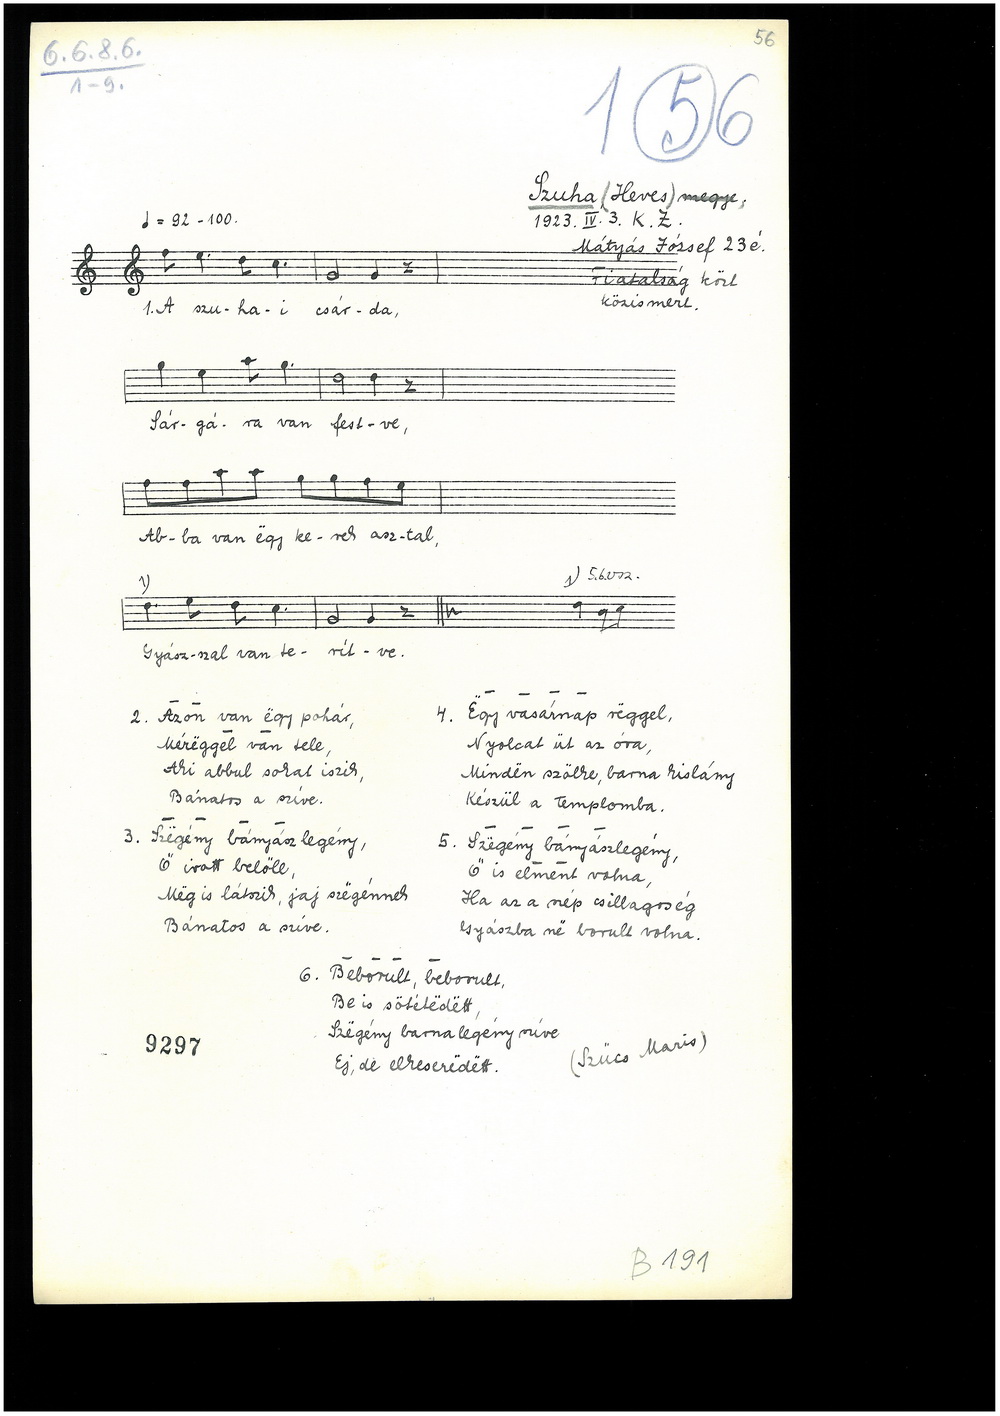 56
6.6.8.6.
1-9.
156
Szuha (Heves) megye,
1923. IV. 3. K. Z.
Mátyás József 23 é.
Fiatalság közt
közismert.
♩ = 92 - 100.
1. A szu-ha-i csár-da,
Sár-gá-ra van fest-ve,
Ab-ba van ëgy ke-rek asz-tal,
1)
1) 5.6.vsz.
Gyász-szal van te-rít-ve.
2. Azon van ëgy pohár,
Méreggel van tele,
Aki abbul sokat iszik,
Bánatos a szíve.
3. Szëgény bányász legény,
Ő ivott belőlle,
Mëg is látszik, jaj szëgénnek
Bánatos a szíve.
4. Ëgy vasárnap rëggel,
Nyolcat üt az óra,
Mindën szőlke, barna kislány
Készül a templomba.
5. Szëgény bányászlegény,
Ő is elmënt volna,
Ha az a nép csillagoség
Gyászba në borult volna.
6. Beborult, beborult,
Be is sötétëdëtt,
Szëgény barna legény szíve
Ej, de elkeserëdëtt.
(Szücs Maris)
9297
B 191